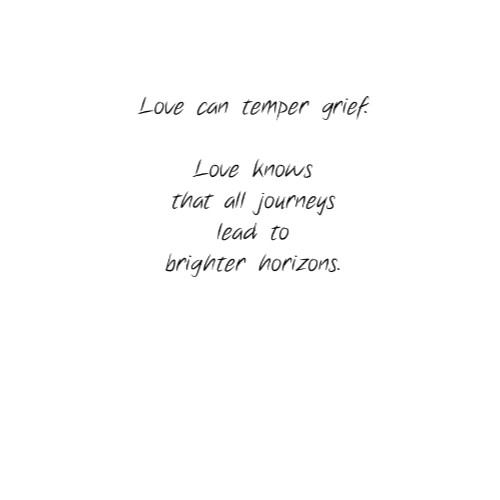 Love can temper grief.
Love knows
that all journeys
lead to
brighter horizons.